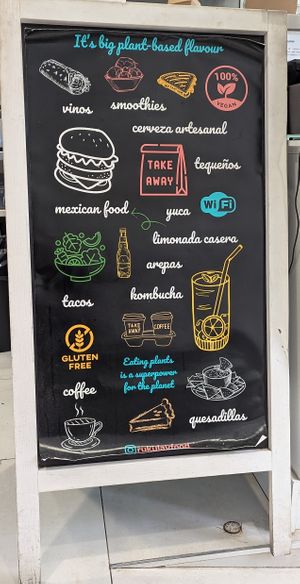 It's big plant-based flavour
100%
VEGAN
vinos
smoothies
cerveza artesanal
TAKE
AWAY
tequeños
mexican food
yuca
WiFi
limonada casera
arepas
tacos
kombucha
TAKE
AWAY
COFFEE
GLUTEN
FREE
Eating plants
is a superpower
for the planet
coffee
quesadillas